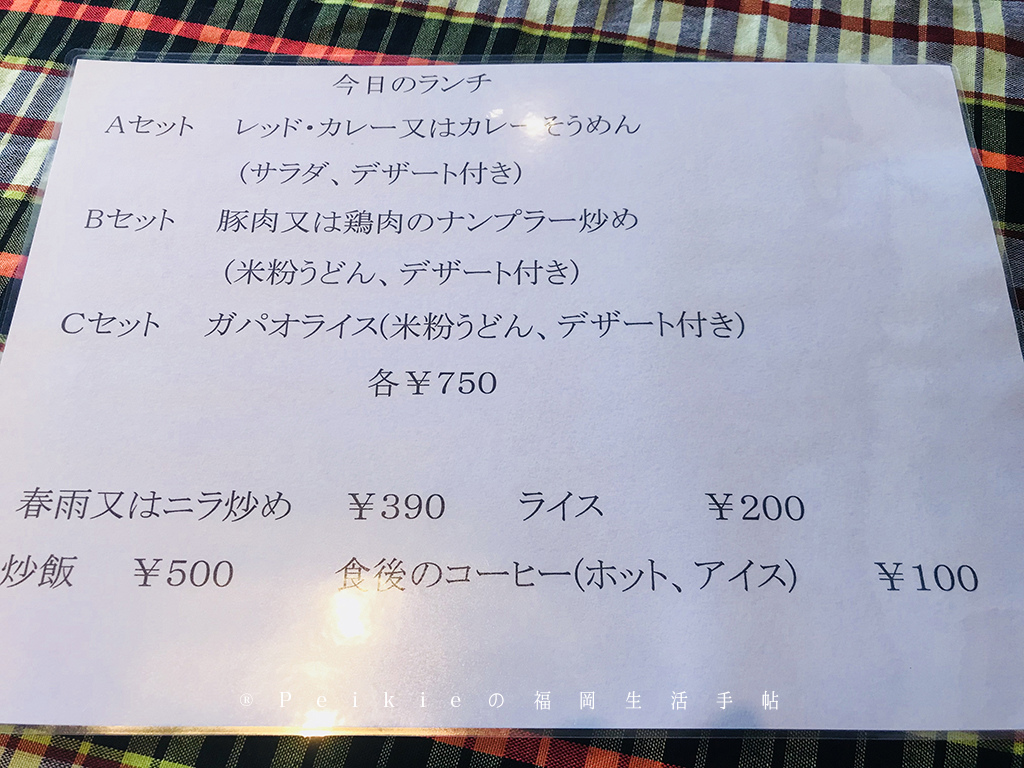 今日のランチ
Aセット レッド・カレー又はカレーそうめん
(サラダ、デザート付き)
Bセット 豚肉又は鶏肉のナンプラー炒め
(米粉うどん、デザート付き)
Cセット ガパオライス(米粉うどん、デザート付き)
各¥750
春雨又はニラ炒め ¥390 ライス ¥200
炒飯 ¥500 食後のコーヒー(ホット、アイス) ¥100
®Peikieの福岡生活手帖